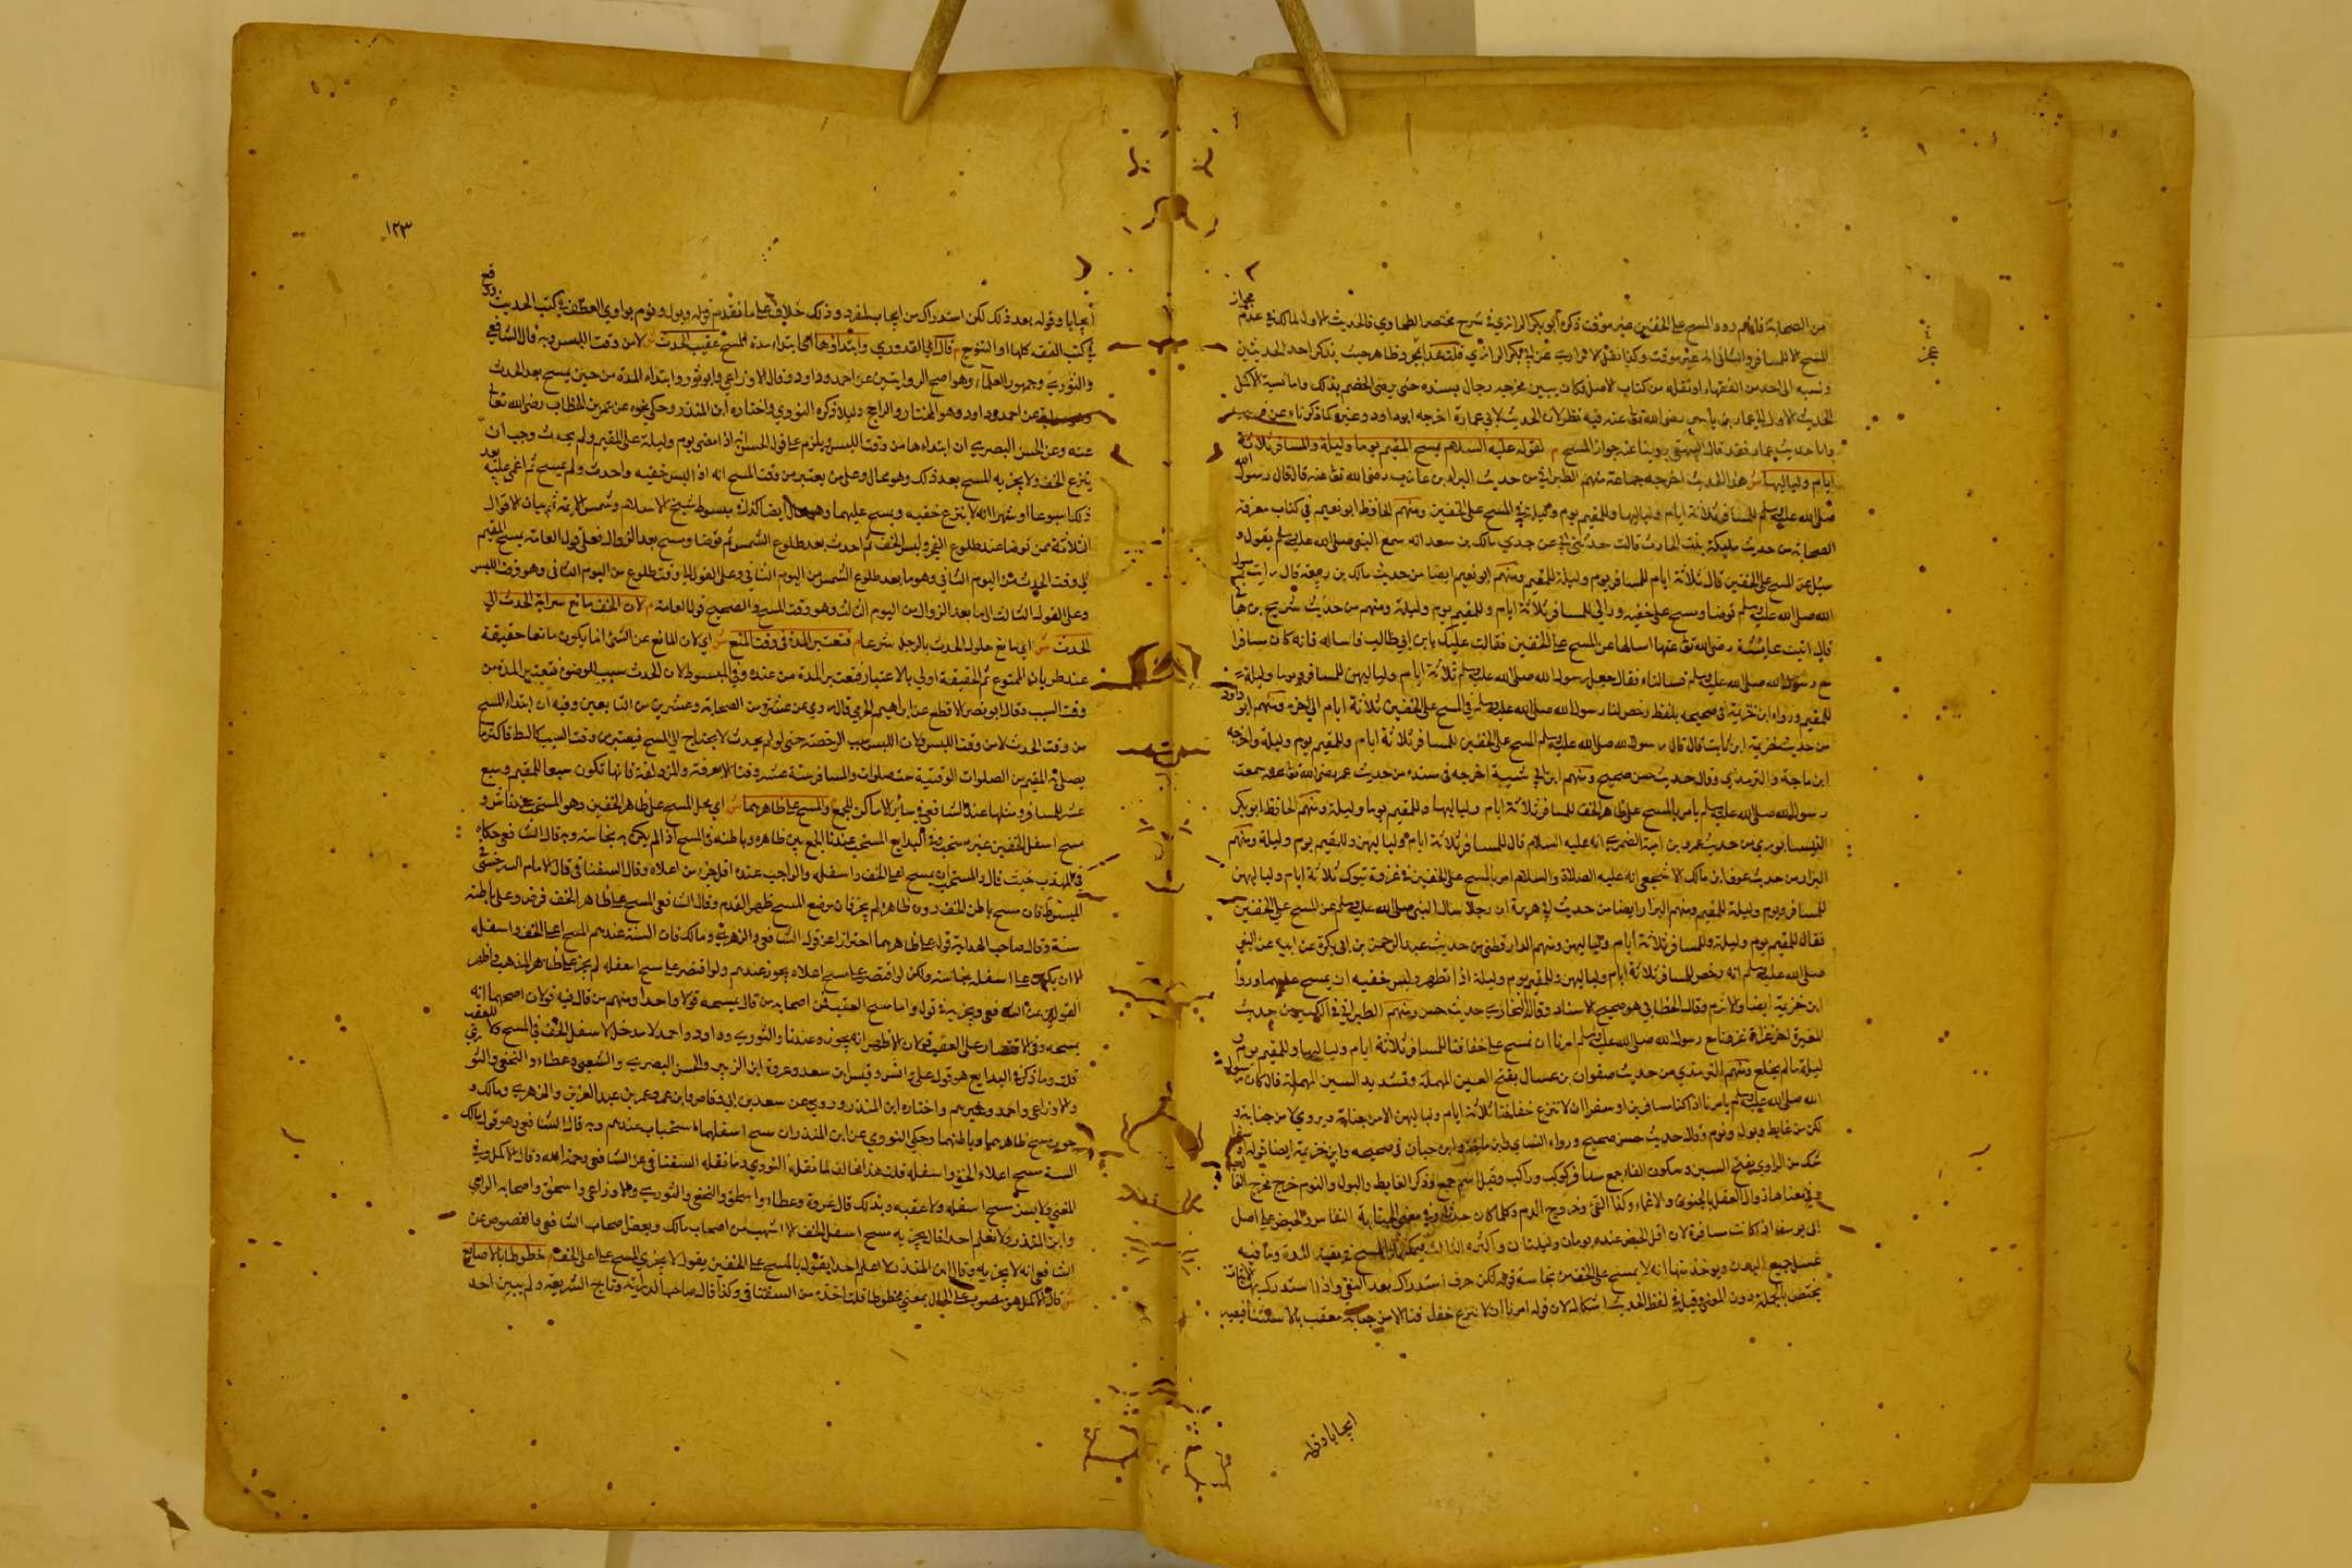 من الصحابة فانهم رووا المسح على الخفين غير موقت ذكره ابو بكر الرازي في شرح مختصر الطحاوي فالحديث الاول لمالك في عدم
للمسح للمسافر والثاني انه غير موقت وكذا نقل الاترازي عن ابي بكر الرازي قلت هذا بمجرد ظاهر حيث يذكر احد الحديثين
ونسبه الى احد من الفقهاء او نقله من كتاب الاصل فكان يبين مخرجه رجال بسنده حتى يرضى الخصم بذلك واما نسبة الاكمل
الحديث الاول الى عمار بن ياسر رضي الله تعا عنه فيه نظر لان الحديث لابي عمارة اخرجه ابو داود وغيره كما ذكرناه عن قريب
واما حديث عمار فقد قال البيهقي روينا عنه جواز المسح م لقوله عليه السلام يمسح المقيم يوما وليلة والمسافر ثلاثة
ايام ولياليها ش هذا الحديث اخرجه جماعة منهم الطبراني من حديث البراء بن عازب رضي الله تعا عنه قال قال رسول الله
صلى الله عليه وسلم للمسافر ثلاثة ايام ولياليها وللمقيم يوم وليلة في المسح على الخفين ومنهم الحافظ ابو نعيم في كتاب معرفة
الصحابة من حديث مليكة بنت الحارث قالت حدثني ابي عن جدي مالك بن سعد انه سمع النبي صلى الله عليه وسلم يقول و
سئل عن المسح على الخفين قال ثلاثة ايام للمسافر يوم وليلة للمقيم ومنهم ابو نعيم ايضا من حديث مالك بن ربيعة قال رايت رسول
الله صلى الله عليه وسلم توضا ومسح على خفيه وراى للمسافر ثلاثة ايام وللمقيم يوم وليلة ومنهم من حديث شريح بن هاني
قال اتيت عائشة رضي الله تعا عنها اسالها عن المسح على الخفين فقالت عليك بابن ابي طالب فاساله فانه كان سافرا
مع رسول الله صلى الله عليه وسلم فسالناه فقال جعل رسول الله صلى الله عليه وسلم ثلاثة ايام ولياليهن للمسافر ويوما وليلة
للمقيم ورواه ابن خزيمة في صحيحه بلفظ رخص لنا رسول الله صلى الله عليه وسلم في المسح على الخفين ثلاثة ايام الى اخره ومنهم ابو داود
من حديث خزيمة ابن ثابت قال قال رسول الله صلى الله عليه وسلم المسح على الخفين للمسافر ثلاثة ايام وللمقيم يوم وليلة واخرجه
ابن ماجة والترمذي وقال حديث حسن صحيح ومنهم ابن ابي شيبة اخرجه في مسنده من حديث عمر رضي الله تعا عنه سمعت
رسول الله صلى الله عليه وسلم يامر بالمسح على ظاهر الخف للمسافر ثلاثة ايام ولياليها وللمقيم يوما وليلة ومنهم الحافظ ابو بكر
النيسابوري من حديث عمرو بن امية الضمري انه عليه السلام قال للمسافر ثلاثة ايام ولياليهن وللمقيم يوم وليلة ومنهم
البزار من حديث عوف ابن مالك الاشجعي انه عليه الصلاة والسلام امر بالمسح على الخفين في غزوة تبوك ثلاثة ايام ولياليهن
للمسافر ويوم وليلة للمقيم ومنهم البزار ايضا من حديث ابي هريرة ان رجلا سال النبي صلى الله عليه وسلم عن المسح على الخفين
فقال للمقيم يوم وليلة وللمسافر ثلاثة ايام ولياليهن ومنهم الدارقطني من حديث عبد الرحمن بن ابي بكرة عن ابيه عن النبي
صلى الله عليه وسلم انه رخص للمسافر ثلاثة ايام ولياليهن وللمقيم يوم وليلة اذا تطهر ولبس خفيه ان يمسح عليهما ورواه
ابن خزيمة ايضا والاثرم وقال الخطابي هو صحيح الاسناد وقال البخاري حديث حسن ومنهم الطبراني في الكبير من حديث
المغيرة اخر غزاة غزونا مع رسول الله صلى الله عليه وسلم امرنا ان نمسح على خفافنا للمسافر ثلاثة ايام ولياليها وللمقيم يوم و
ليلة ما لم يخلع ومنهم الترمذي من حديث صفوان بن عسال بفتح العين المهملة وتشديد السين المهملة قال كان رسول
الله صلى الله عليه وسلم يامرنا اذا كنا مسافرين او سفرا ان لا ننزع خفافنا ثلاثة ايام ولياليهن الا من جنابة ويروى لا من جنابة و
لكن من غايط وبول ونوم وقال حديث حسن صحيح ورواه النسائي وابن ماجة وابن حبان في صحيحه وابن خزيمة ايضا قوله او سفرا
شك من الراوي بفتح السين وسكون الفا جمع سافر كركب وراكب وقيل اسم جمع وذكر الغايط والبول والنوم خرج مخرج الغالب
وفي معناها زوال العقل بالجنون والاغماء وكذا القئ وخروج الدم وكلما كان حدثا وفي معنى الجنابة النفاس والحيض على اصل
ابي يوسف اذا كانت مسافرة لان اقل الحيض عنده يومان وليلتان واكثره الثالث فيمكن المسح في بقية المدة وما فيه
غسل جميع البدن ويوخذ منها انه لا يمسح على الخف من نجاسة قوله لكن حرف استدراك بعد النفي واذا استدرك بها لاثبات
يختص بالجملة دون المفرد وقيل في لفظ الحديث اشكال لان قوله امرنا ان لا ننزع خفافنا الا من جنابة معقب بالاستثنا فيصير
ايجابا وقوله
١٢٣
ايجابا وقوله بعد ذلك لكن استدراك من ايجاب لمفرد وذلك خلاف على ما تقدم قوله وبول ونوم بواوي العطف في كتب الحديث
في كتب الفقه كلها او النوم م قال اي القدوري وابتداؤها اي ابتداء مدة المسح عقيب الحدث ش لا من وقت اللبس وبه قال الشافعي
والثوري وجمهور العلماء وهو اصح الروايتين عن احمد وداود وقال الاوزاعي وابو ثور وابتداء المدة من حين يمسح بعد الحدث
عن احمد وداود وهو المختار والراجح دليلا ذكره النووي واختاره ابن المنذر وحكي نحوه عن عمر بن الخطاب رضي الله تعالى
عنه وعن الحسن البصري ان ابتداءها من وقت اللبس ويلزم على قول الحسن انه اذا مضى يوم وليلة على المقيم ولم يحدث وجب ان
ينزع الخف ولا يجزيه المسح بعد ذلك وهو محال وعلى من يعتبر من وقت المسح انه اذا لبس خفيه واحدث ولم يمسح ثم اغمي عليه بعد
ذلك اسبوعا او شهرا انه لا ينزع خفيه ويمسح عليهما وهو محال ايضا كذا في مبسوط شيخ الاسلام وشمس الائمة ثم بيان الاقوال
الثلاثة فيمن توضا عند طلوع الفجر ولبس الخف ثم احدث بعد طلوع الشمس ثم توضا ومسح بعد الزوال فعلى قول العامة يمسح المقيم
الى وقت الحدث من اليوم الثاني وهو ما بعد طلوع الشمس من اليوم الثاني وعلى القول الى وقت طلوع من اليوم الثاني وهو وقت اللبس
وعلى القول الثالث الى ما بعد الزوال من اليوم الثالث وهو وقت المسح والصحيح قول العامة م لان الخف مانع سراية الحدث الى
الحدث ش اي مانع حلول الحدث بالرجل شرعا م فتعتبر المدة في وقت المنع ش اي لان المانع عن الشئ انما يكون مانعا حقيقة
عند طريان الممنوع ثم الحقيقة اولى بالاعتبار فتعتبر المدة من عنده وفي المبسوط لان الحدث سبب للوضوء فتعتبر المدة من
وقت السبب وقال ابو نصر الاقطع عن ابراهيم الحربي قال روي عن عشرة من الصحابة وعشرين من التابعين وفيه ان ابتداء المسح
من وقت الحدث لا من وقت اللبس فلان اللبس سبب الرخصة حتى لو لم يحدث لا يحتاج الى المسح فيعتبر من وقت السبب كالسط فاكثر ما
يصلي به المقيم من الصلوات الوقتية ست صلوات والمسافر ستة عشر وقتا الا بعرفة والمزدلفة فانها تكون سبعا للمقيم وسبع
عشر للمسافر ومثلها عند الشافعي في سائر الاماكن للجمع م والمسح على ظاهرهما ش اي محل المسح على ظاهر الخفين وهو المستحب عندنا ش و
مسح اسفل الخفين غير مستحب وفي البدايع المستحب عندنا الجمع بين ظاهره وباطنه في المسح اذا لم يكن به نجاسة وبه قال الشافعي حكاه
في المهذب حيث قال والمستحب ان يمسح اعلى الخف واسفله والواجب عنده اقل جزء من اعلاه وقال السغناقي قال الامام السرخسي في
المبسوط فان مسح باطن الخف دون ظاهره لم يجز فان موضع المسح ظهر القدم وقال الشافعي المسح على ظاهر الخف فرض وعلى باطنه
سنة وقال صاحب الهداية قوله على ظاهرهما احترازا عن قول الشافعي والزهري ومالك فان السنة عندهم المسح اعلى الخف واسفله
الا ان يكون على اسفله نجاسة ولكن لو اقتصر على مسح اعلاه يجوز عندهم ولو اقتصر على مسح اسفله لم يجز على ظاهر المذهب واظهر
القولين عن الشافعي ويجزيه في قول واما مسح العقب فمن اصحابه من قال يمسحه قولا واحدا ومنهم من قال فيه قولان اصحهما انه
يمسحه وفي الاقتصار على العقب قولان الاظهر انه يجوز وعندنا والثوري وداود واحمد لا مدخل لاسفل الخف في المسح ولا للعقب
قلت وما ذكره في البدايع هو قول علي وانس وقيس ابن سعد وعروة ابن الزبير والحسن البصري والشعبي وعطاء والنخعي والثوري
والاوزاعي واحمد وغيرهم واختاره ابن المنذر وروي عن سعد بن ابي وقاص وابن عمر وعمر بن عبد العزيز والزهري ومالك و
جوب مسح ظاهرهما وباطنهما وحكى النووي عن ابن المنذر ان مسح اسفلهما استحباب عندهم وبه قال الشافعي وهو قول مالك
السنة مسح اعلاه الخف واسفله قلت هذا مخالف لما نقله النووي وما نقله السغناقي عن الشافعي رحمه الله وقال الاكمل وفي
المغني ولا يسن مسح اسفله ولا عقبه وبذلك قال عروة وعطاء واسحق والنخعي والثوري والاوزاعي واسحق واصحاب الراي
وابن المنذر ولا نعلم احدا قال يجزيه مسح اسفل الخف الا اشهب من اصحاب مالك وبعض اصحاب الشافعي والمنصوص عن
الشافعي انه لا يجزيه وقال ابن المنذر لا اعلم احدا يقول بالمسح على الخفين يقول لا يجزي المسح على اعلى الخف م خطوطا بالاصابع
ش قال الاكمل هو منصوب على الحال بمعنى مخطوطا قلت اخذه من السغناقي وكذا قال صاحب الدراية وتاج الشريعة ولم يبين احد